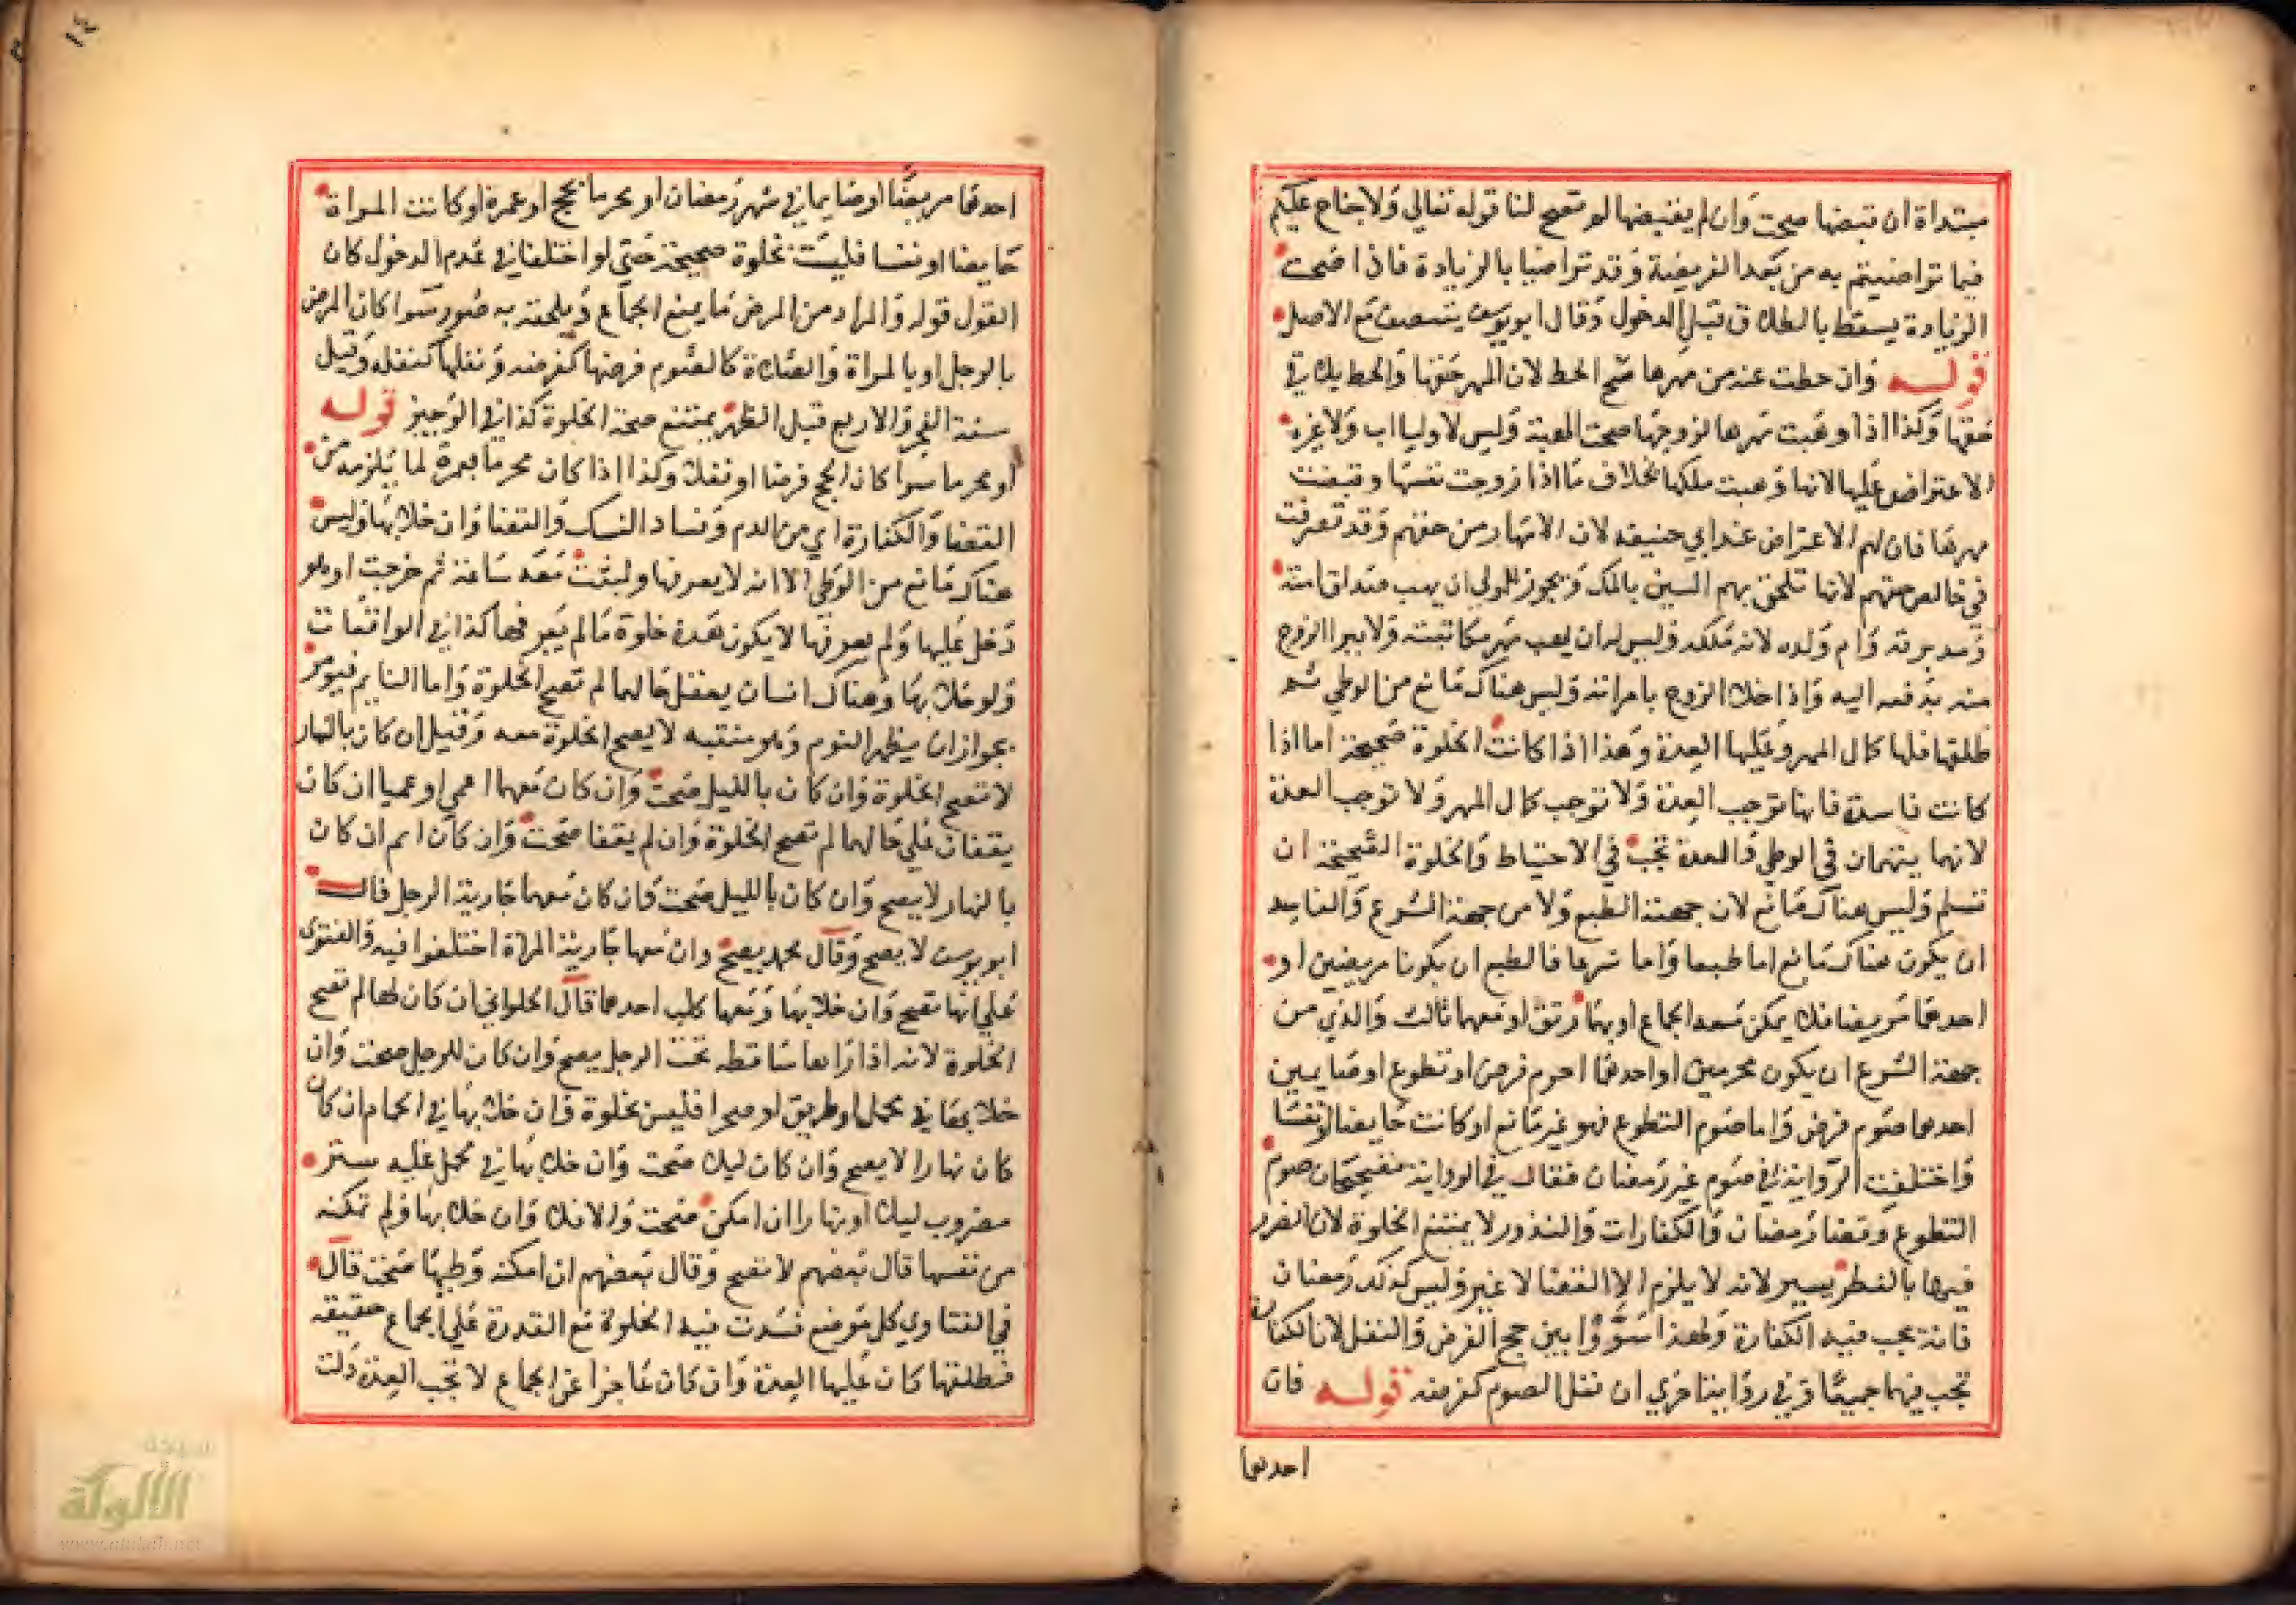 مبتداة ان قبضها صحت وان لم يقبضها لم تصح لنا قوله تعالي ولا جناح عليكم
فيما تراضيتم به من بعد الفريضة وقد تراضيا بالزيادة فاذا صحت
الزيادة يسقط بالطلاق قبل الدخول وقال ابويوسف يتنصف مع الاصل
قوله وان حطت عنه من مهرها صح الحط لان المهر حقها والحط يلاقي
حقها وكذا اذا وهبت مهرها لزوجها صحت الهبة وليس لاوليا اب ولا غيره
الاعتراض عليها لانها وهبت ملكها بخلاف ما اذا زوجت نفسها وقبضت
مهرها فان لهم الاعتراض عند ابي حنيفه لان الامهار من حقهم وقد تصرفت
في خالص حقهم لانها تلحق بهم الشين بالمك ويجوز للمولي ان يهب صداق امته
ومدبرته وام ولده لانه ملكه وليس له ان يهب مهر مكاتبته ولا يبرا الزوج
منه بدفعه اليه واذا خلا الزوج بامراته وليس هناك مانع من الوطي ثم
طلقها فلها كمال المهر وعليها العدة وهذا اذا كانت الخلوة صحيحة اما اذا
كانت فاسدة فانها توجب العدة ولا توجب كمال المهر ولا توجب العدة
لانهما يتهمان في الوطي والعدة تجب في الاحتياط والخلوة الصحيحة ان
تسلم وليس هناك مانع لان جهة الطبع ولا من جهة الشرع والفاسد
ان يكون هناك مانع اما طبعا واما شرعا فالطبع ان يكونا مريضين او
احدهما مريضا فلا يمكن معه الجماع او بها رتق او معهما ثالث والذي من
جهة الشرع ان يكون محرمين او احدهما احرم فرض او تطوع او صايمين
احدهما صوم فرض واما صوم التطوع فهو غير مانع او كانت حايضا او نفسا
واختلفت الرواية في صوم غير رمضان فقال في الرواية صوم
التطوع وقضا رمضان والكفارات والنذور لا يمنع الخلوة لان الضرر
فيها بالفطر يسير لانه لا يلزم الا القضا لا غير وليس كذلك رمضان
فانه يجب فيه الكفارة ولهذا سووا بين حج الفرض والنفل لان الكفارة
تجب فيهما جميعا وفي رواية اخري ان نفل الصوم كفرضه قوله فان
احدهما
١٤
احدهما مريضا او صايما في شهر رمضان او محرما بحج او عمرة او كانت المراة
حايضا او نفسا فليست بخلوة صحيحة حتي لو اختلفا في عدم الدخول كان
القول قوله والمراد من المرض ما يمنع الجماع ويلحقه به ضرر سوا كان المرض
بالرجل او بالمراة والصلاة كالصوم فرضها كفرضه ونفلها كنفله وقيل
سنة الفجر والاربع قبل الظهر يمتنع صحة الخلوة كذا في الوجيز قوله
او محرما سوا كان الحج فرضا او نفلا وكذا اذا كان محرما بعمرة لما يلزمه من
القضا والكفارة اي من الدم وفساد النسك والقضا وان خلا بها وليس
هناك مانع من الوطي الا انه لا يعرفها ولبثت معه ساعة ثم خرجت او هو
دخل عليها ولم يعرفها لا يكون هذه خلوة ما لم يعرفها كذا في الواقعات
ولو خلا بها وهناك انسان يعقل حالهما لم تصح الخلوة واما النايم
بجواز ان يظهر النوم وهو منتبه لا يصح الخلوة معه وقيل ان كان بالنهار
لا تصح الخلوة وان كان بالليل صحت وان كان معهما اعمي او عميا ان كان
يقفان علي حالهما لم تصح الخلوة وان لم يقفا صحت وان كان اصم ان كان
بالنهار لا يصح وان كان بالليل صحت فان كان معهما جارية الرجل قال
ابويوسف لا يصح وقال محمد يصح وان معها جارية المراة اختلفوا فيه والفتوي
علي انها تصح وان خلا بها ومعها كلب احدهما قال الحلواني ان كان لها لم تصح
الخلوة لانه اذا راها ساقطه تحت الرجل يصيح وان كان للرجل صحت وان
خلا بها في محمل او طريق او صحرا فليس بخلوة وان خلا بها في الحمام ان كان
كان نهارا لا يصح وان كان ليلا صحت وان خلا بها في محمل عليه ستر
مضروب ليلا او نهارا ان امكن صحت والا فلا وان خلا بها ولم تمكنه
من نفسها قال بعضهم لا تصح وقال بعضهم ان امكنه وطيها صحت قال
في الفتاوي كل موضع فسدت فيه الخلوة مع القدرة علي الجماع حقيقه
فطلقها كان عليها العدة وان كان عاجزا عن الجماع لا تجب العدة دلت
شبكة
الألوكة
www.alukah.net